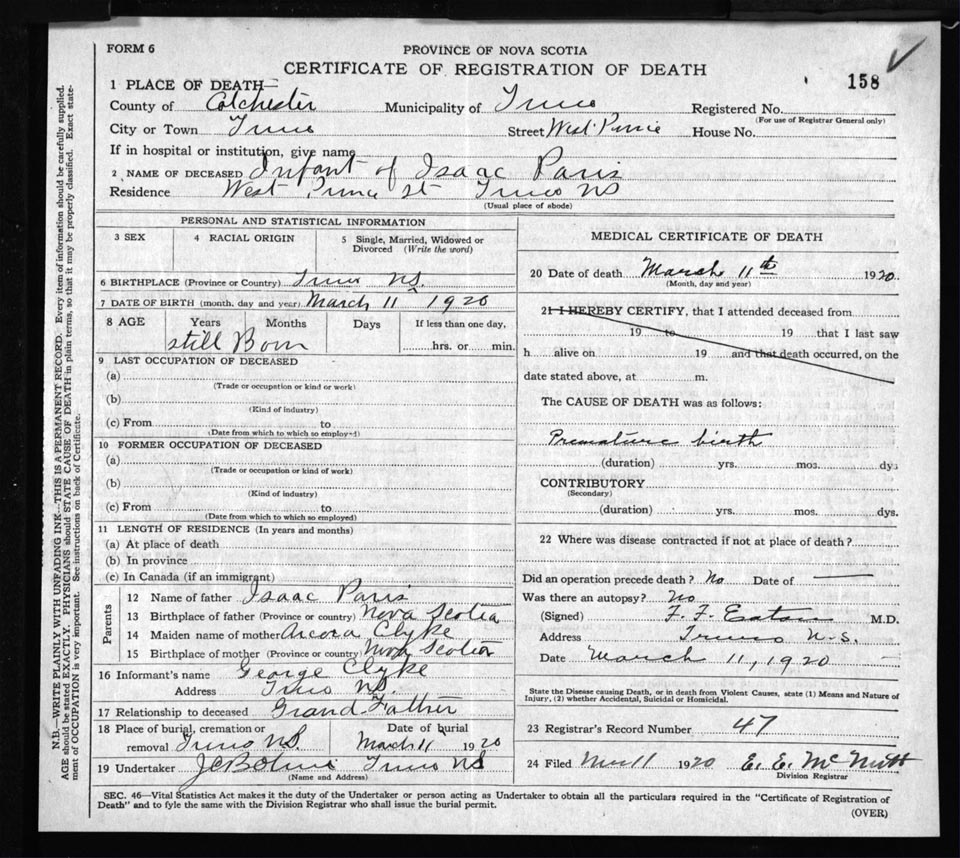 FORM 6
PROVINCE OF NOVA SCOTIA
CERTIFICATE OF REGISTRATION OF DEATH
158
1 PLACE OF DEATH
County of Colchester Municipality of Truro Registered No.
(For use of Registrar General only)
City or Town Truro Street West Prince House No.
If in hospital or institution, give name
2 NAME OF DECEASED Infant of Isaac Paris
Residence West Prince St Truro NS
(Usual place of abode)
PERSONAL AND STATISTICAL INFORMATION
3 SEX 4 RACIAL ORIGIN 5 Single, Married, Widowed or Divorced (Write the word)
6 BIRTHPLACE (Province or Country) Truro NS
7 DATE OF BIRTH (month, day and year) March 11 1920
8 AGE Years Months Days If less than one day,
still Born hrs. or min.
9 LAST OCCUPATION OF DECEASED
(a)
(Trade or occupation or kind or work)
(b)
(Kind of industry)
(c) From to
(Date from which to which so employed)
10 FORMER OCCUPATION OF DECEASED
(a)
(Trade or occupation or kind of work)
(b)
(Kind of industry)
(c) From to
(Date from which to which so employed)
11 LENGTH OF RESIDENCE (In years and months)
(a) At place of death
(b) In province
(c) In Canada (if an immigrant)
Parents
12 Name of father Isaac Paris
13 Birthplace of father (Province or country) Nova Scotia
14 Maiden name of mother Clyke
15 Birthplace of mother (Province or country) Nova Scotia
16 Informant's name George Clyke
Address Truro NS.
17 Relationship to deceased Grand Father
18 Place of burial, cremation or Date of burial
removal Truro NS. March 11 1920
19 Undertaker Truro NS
(Name and Address)
MEDICAL CERTIFICATE OF DEATH
20 Date of death March 11th 1920
(Month, day and year)
21 I HEREBY CERTIFY, that I attended deceased from
19 to 19 that I last saw
h alive on 19 and that death occurred, on the
date stated above, at m.
The CAUSE OF DEATH was as follows:
Premature birth
(duration) yrs. mos. dys
CONTRIBUTORY
(Secondary)
(duration) yrs. mos. dys.
22 Where was disease contracted if not at place of death?
Did an operation precede death? No Date of
Was there an autopsy? No
(Signed) F. F. Eaton M.D.
Address Truro N.S.
Date March 11, 1920
State the Disease causing Death, or in death from Violent Causes, state (1) Means and Nature of
Injury, (2) whether Accidental, Suicidal or Homicidal.
23 Registrar's Record Number 47
24 Filed 11 1920 E. E. McNutt
Division Registrar
SEC. 46—Vital Statistics Act makes it the duty of the Undertaker or person acting as Undertaker to obtain all the particulars required in the "Certificate of Registration of
Death" and to fyle the same with the Division Registrar who shall issue the burial permit.
(OVER)
N.B.—WRITE PLAINLY WITH UNFADING INK—THIS IS A PERMANENT RECORD. Every item of information should be carefully supplied.
AGE should be stated EXACTLY. PHYSICIANS should STATE CAUSE OF DEATH in plain terms, so that it may be properly classified. Exact state-
ment of OCCUPATION is very important. See instructions on back of Certificate.